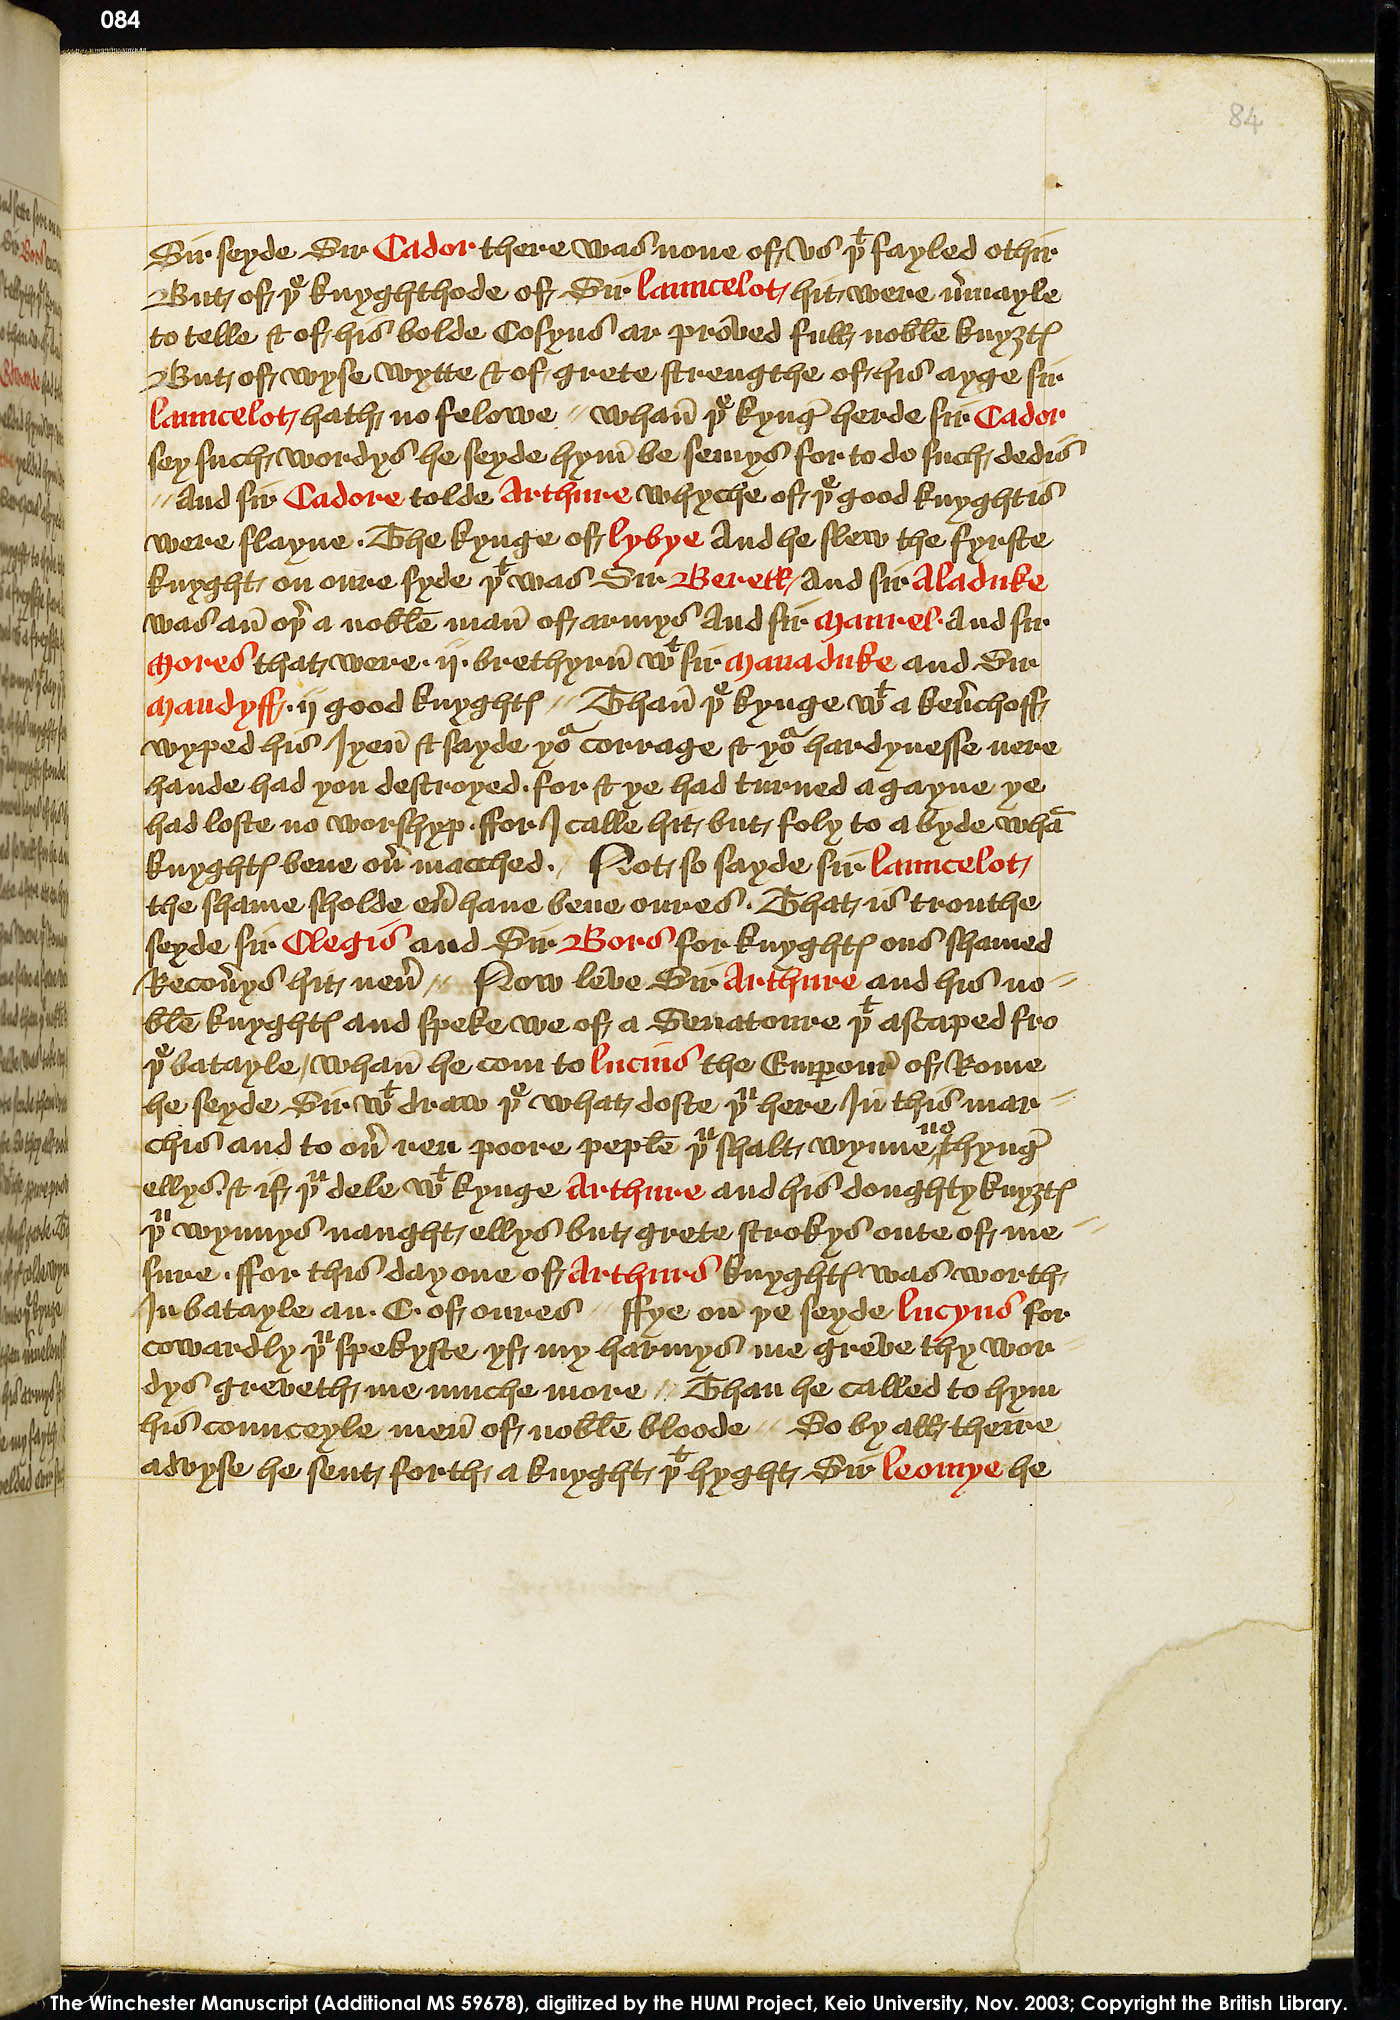 084
84
Sir seyde Sir Cador there was none of vs þᵗ fayled othir
But of þᵉ knyghthode of Sir launcelot hit were m̄vayle
to telle & of his bolde Cosyns ar proved full noble knyȝtes
But of wyse wytte & of grete strengthe of his ayge sir
launcelot hath no felowe // whan̄ þᵉ kynge herde sir Cador
sey such wordys he seyde hym̄ be semys for to do such dedis
// And sir Cadore tolde Arthure whyche of þᵉ good knyghtis
were slayne . The kynge of lybye And he slew the fyrste
knyght on oure syde þᵗ was Sir Berell And sir Aladuke
was an̄ oþ̄ a noble man̄ of armys And sir Maurel And sir
Mores that were .ij. brethyrn̄ wᵗ sir Manaduke and Sir
Mandyff .ij good knyghtes // Than̄ þᵉ kynge wᵗ a kev̄choff
wyped his Iyen̄ & sayde yoᵃ corrage & yoᵃ hardynesse nere
hande had you destroyed . for & ye had turned agayne ye
had loste no worshyp . ffor I calle hit but foly to abyde whā
knyghtes bene ov̄ macched . / Not so sayde sir launcelot
the shame sholde ev̄ have bene oures . That is trouthe
seyde sir Clegis and Sir Bors for knyghtes ons shamed
Recov̄ys hit nev̄ // Now leve Sir Arthure and his no-
ble knyghtes and speke we of a Senatoure þᵗ ascaped fro
þᵉ batayle / whan̄ he com to lucius the Emperour of Rome
he seyde Sir wᵗ draw þᵉ what doste þᵘ here In this mar-
chis and to ov̄ ren poore peple þᵘ shalt wynne no thynge
ellys . & if þᵘ dele wᵗ kynge Arthure and his doughty knyȝtes
þᵘ wynnys naught ellys but grete strokys oute of me-
sure . ffor this day one of Arthurs knyghtes was worth
In batayle an . C . of oures // ffye on̄ þe seyde lucyus for
cowardly þᵘ spekyste yf my harmys me greve thy wor-
dys greveth me muche more // Than he called to hym
his counceyle men̄ of noble bloode // So by all theire
advyse he sent forth a knyght þᵗ hyght Sir leomye he
The Winchester Manuscript (Additional MS 59678), digitized by the HUMI Project, Keio University, Nov. 2003; Copyright the British Library.